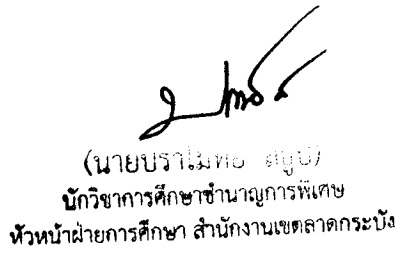 (นายปราโมทย์
นักวิชาการศึกษาชำนาญการพิเศษ
หัวหน้าฝ่ายการศึกษา สำนักงานเขตลาดกระบัง